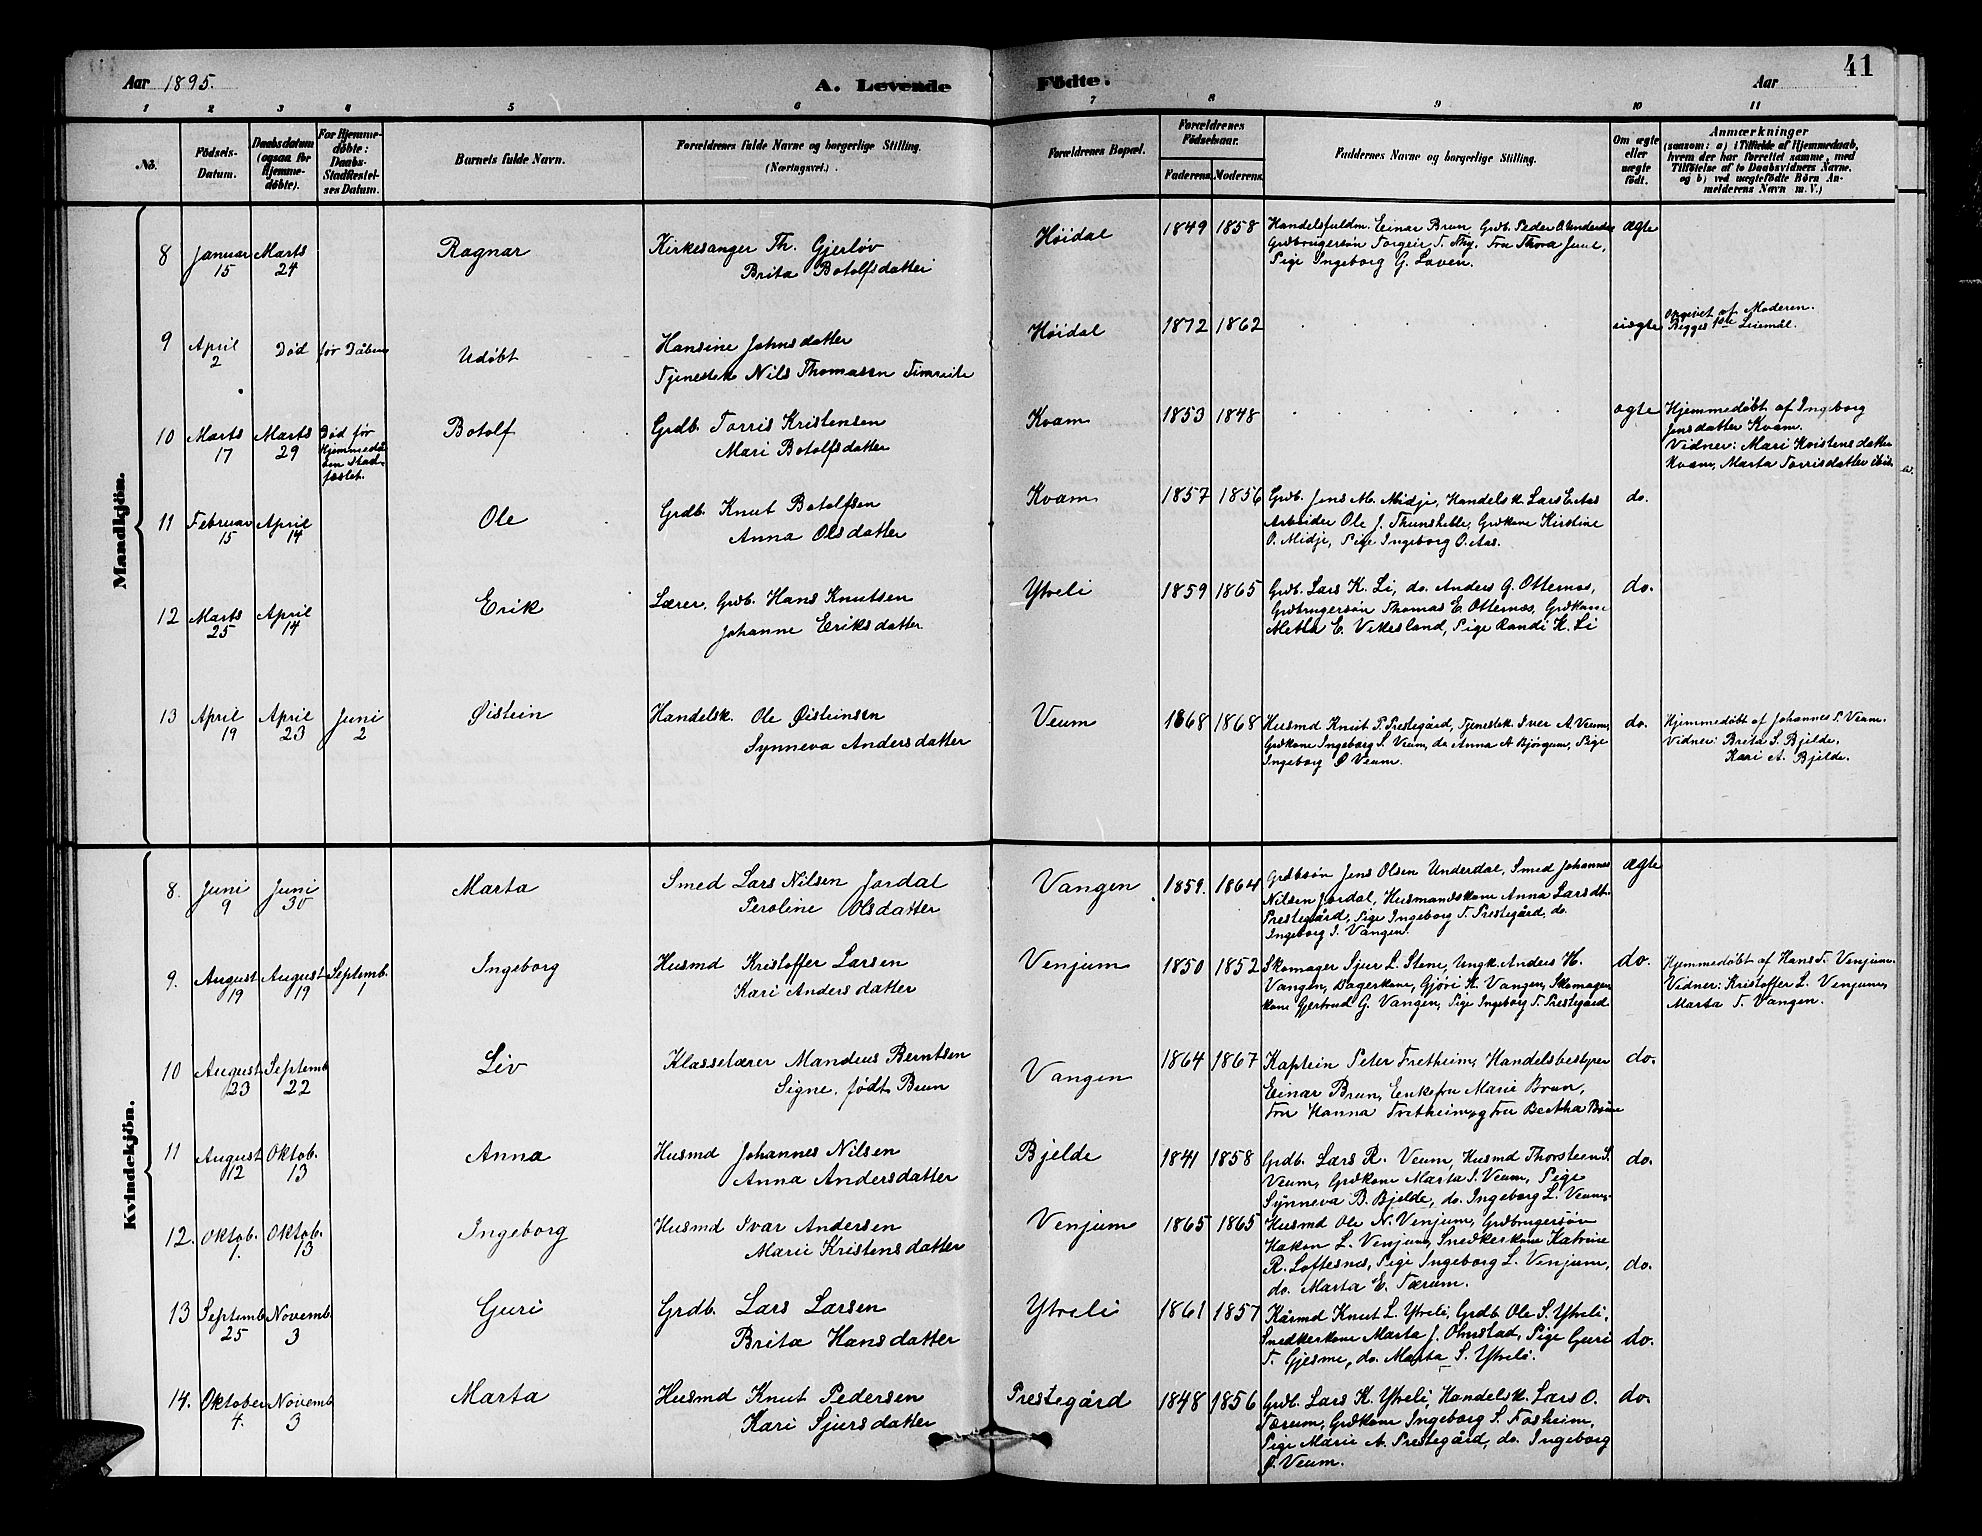 Aar 1895. A. Levende Födte. Aar 41
1 2 3 4 5 6 7 8 9 10 11
No. Födsels-Datum. Daabsdatum (ogsaa for Hjemme-döbte). For Hjemme-döbte: Daabs-Stadfæstel-ses Datum. Barnets fulde Navn. Forældrenes fulde Navne og borgerlige Stilling. (Næringsvei.) Forældrenes Bopæl. Forældrenes Födselsaar. Faderens. Moderens. Faddernes Navne og borgerlige Stilling. Om ægte eller uægte födt. Anmærkninger (saasom: a) i Tilfælde af Hjemmedaab, hvem der har forrettet samme, med Tilföielse af to Daabsvidners Navne, og b) ved uægtefödte Börn An-melderens Navn m. V.)
Mandkjön.
8 Januar 15 Marts 24 Ragnar Kirkesanger Th. Gjerløv Høidal 1849 1858 Handelsfuldm. Einar Brun Grdb. Peder O. Underdal ægte
Brita Botolfsdatter Grdbrugersøn Torgeir T. Thy, Fru Thora Juul,
Pige Ingeborg G. Loven.
9 April 2 Død før Dåben Udøbt Hansine Johnsdatter Høidal 1872 1862 uægte Opgivet af Moderen.
Tjenestek Nils Thomassen Timreite Begges 1ste Leiemål.
10 Marts 17 Marts 29 Død før Hjemmedå-ben Stad-fæstet. Botolf Grdb. Torris Kristensen Kvam 1853 1848 ægte Hjemmedøbt af Ingeborg
Mari Botolfsdatter Jensdatter Kvam.
Vidner: Mari Kristensdatter
Kvam, Marta Torrisdatter ibid.
11 Februar 15 April 14 Ole Grdb. Knut Botolfsen Kvam 1857 1856 Grdb. Jens M. Midje, Handelsk. Lars E. Aas do.
Anna Olsdatter Arbeider Ole J. Thunshelle, Grdkone Kirstine
O. Midje, Pige Ingeborg O. Aas.
12 Marts 25 April 14 Erik Lærer, Grdb. Hans Knutsen Ytreli 1859 1865 Grdb. Lars K. Li, do. Anders G. Otternæs, do.
Johanne Eriksdatter Grdbrugersøn Thomas E. Otternæs, Grdkone
Metha E. Vikesland, Pige Randi K. Li
13 April 19 April 23 Juni 2 Øistein Handelsk. Ole Øisteinsen Veum 1868 1868 Husmd Knut P. Prestegård, Tjenestek Iver A. Veum, do. Hjemmedøbt af Johannes P. Veum.
Synneva Andersdatter Grdkone Ingeborg S. Veum, do Anna A Bjørgum, Pige Vidner: Breta S. Bjelde,
Ingeborg Ø Veum. Kari A. Bjelde.
Kvindekjön.
8. Juni 9 Juni 30 Marta Smed Lars Nilsen Jordal Vangen 1859. 1864 Grdbsøn Jens Olsen Underdal, Smed Johannes ægte
Peroline Olsdatter Nilsen Jordal, Husmandskone Anna Larsdt.
Prestegård, Pige Ingeborg T. Prestegård, do.
Ingeborg J. Vangen.
9. August 19 August 19 Septemb. 1 Ingeborg Husmd Kristoffer Larsen Venjum 1850 1852 Skomager Sjur L. Stene, Ungk. Anders H. do. Hjemmedøbt af Hans T. Venjum.
Kari Andersdatter Vangen, Bagerkone, Gjøri K. Vangen, Skomager Vidner: Kristoffer L. Venjum,
kone Gjertrud G. Vangen, Pige Ingeborg T. Prestegård Marta T. Vangen.
10 August 23 Septemb 22 Liv Klasselærer Mandeus Berntsen Vangen 1864 1867 Kaptein Peter Fretheim, Handelsbestyrer do.
Signe, født Brun Einar Brun, Enkefru Marie Brun,
Fru Hanna Fretheim, og Fru Bertha Brun
11 August 12 Oktob. 13 Anna Husmd Johannes Nilsen Bjelde 1841 1858 Grdb. Lars R. Veum, Husmd Thorsteen S. do.
Anna Andersdatter Veum, Grdkone Marta S. Veum, Pige
Synneva B. Bjelde, do. Ingeborg L. Veum.
12. Oktob. 1. Oktob. 13 Ingeborg Husmd Ivar Andersen Venjum 1865 1865 Husmd Ole N. Venjum, Grdbrugersøn
Marie Kristensdatter Hakon L. Venjum, Snedkerkone Katrine
R. Loftesnæs, Pige Ingeborg L. Venjum, do.
do. Marta E. Tærum.
13 Septemb 25 Novemb. 3 Guri Grdb. Lars Larsen Ytreli 1861 1857 Kårmd Knut L. Ytreli, Grdb. Ole S. Ytreli,
Brita Hansdatter Snedkerkone Marta J. Ohnstad, Pige Guri do.
T. Gjesme, do. Marta S. Ytreli.
14. Oktober 4. Novemb 3 Marta Husmd Knut Pedersen Prestegård 1848 1856 Grdb. Lars K. Ytreli, Handelsk. Lars O. do.
Kari Sjursdatter Tærum, Grdkone Ingeborg S. Fosheim,
Pige Marie A. Prestegård, do. Ingeborg
Ø. Veum.